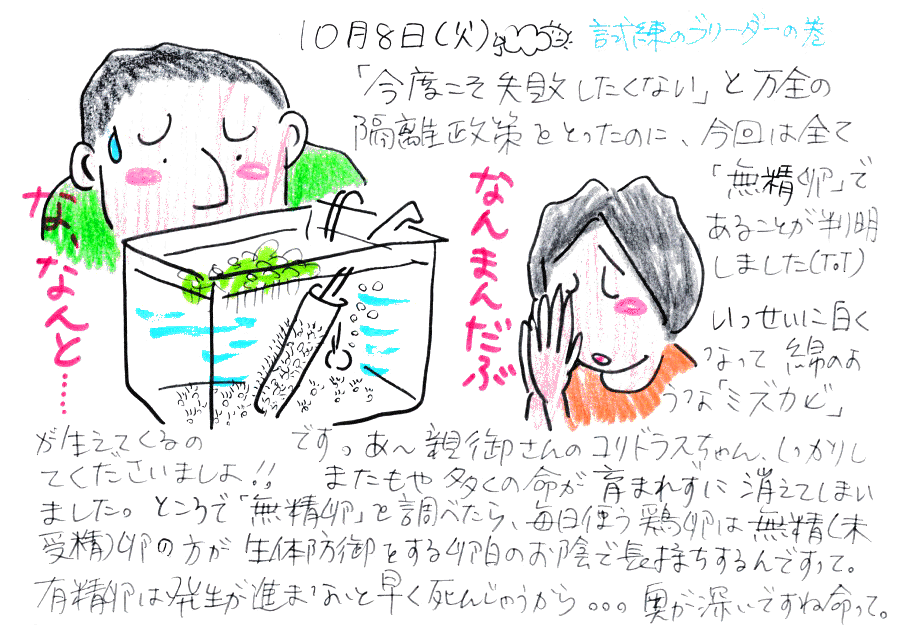 10月8日(火) 試練のブリーダーの巻
「今度こそ失敗したくない」と万全の
隔離政策をとったのに、今回は全て
「無精卵」で
あることが判明
しました(ToT)
いっせいに白く
なって綿のよ
うな「ミズカビ」
な、なんと……
なんまんだぶ
が生えてくるの です。あ〜親御さんのコリドラスちゃん、しっかりし
てくださいましよ!! またもや多くの命が育まれずに消えてしまい
ました。ところで「無精卵」を調べたら、毎日使う鶏卵は無精(未
受精)卵の方が生体防御をする卵白のお陰で長持ちするんですって。
有精卵は発生が進まないと早く死んじゃうから。。。奥が深いですね命って。